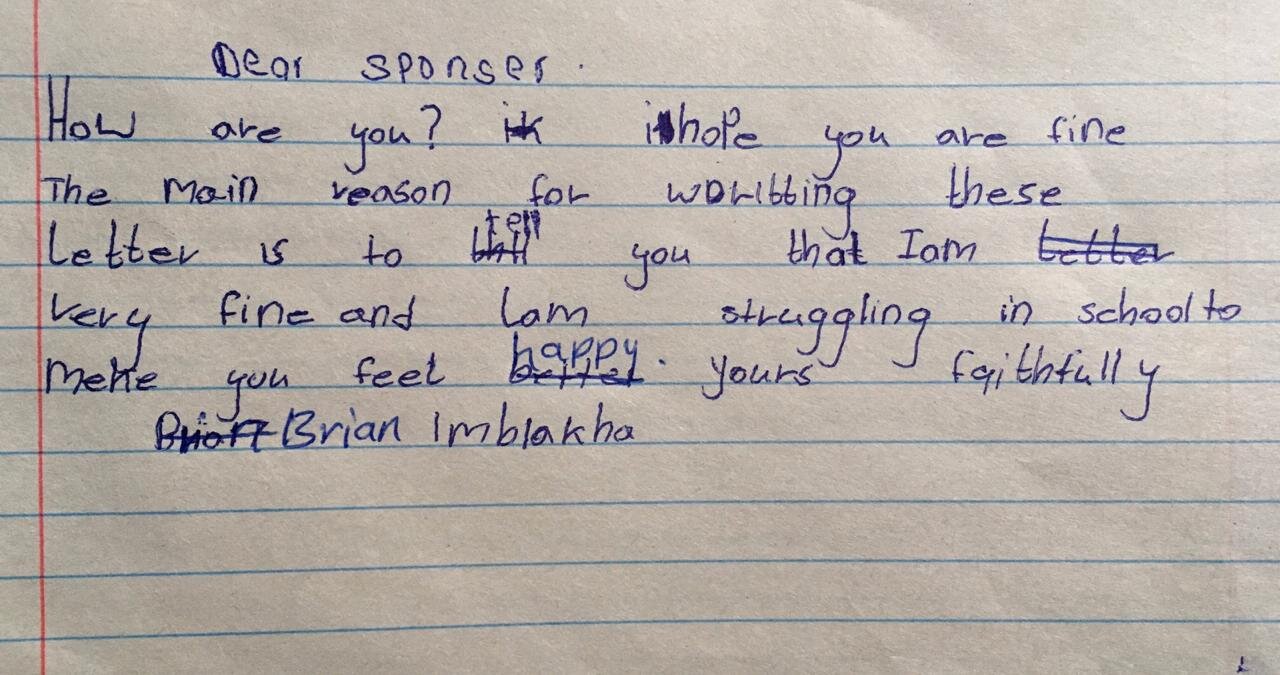 Dear sponser.
How are you? i hope you are fine
The main reason for writting these
Letter is to tell you that Iam
very fine and Iam struggling in school to
meke you feel happy. yours faithfully
Brian Imblakha